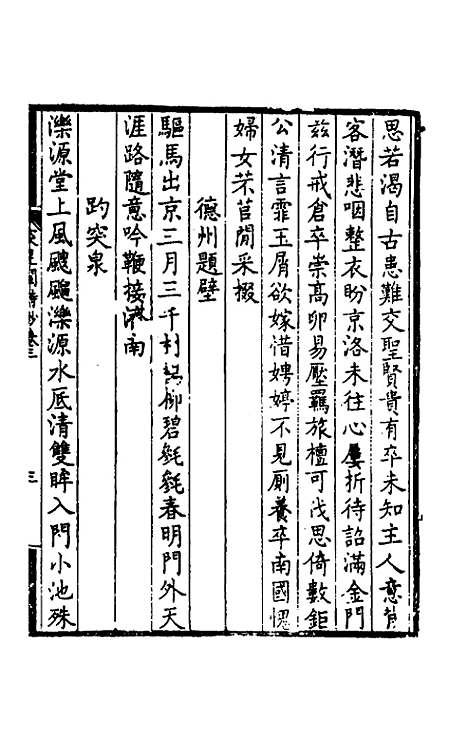 思若渴自古患難交聖賢貴有卒未知主人意
客潛悲咽整衣盼京洛未往心屢折待詔滿金門
兹行戒倉卒崇高卵易壓羈旅檀可伐思倚數鉅
公清言霏玉屑欲嫁惜娉婷不見厠養卒南國愧
婦女芣苢閒采掇
德州題壁
驅馬出京三月三千村柳碧毿毿春明門外天
涯路隨意吟鞭接濟南
趵突泉
濼源堂上風颼颼濼源水底清雙眸入門小池殊
三